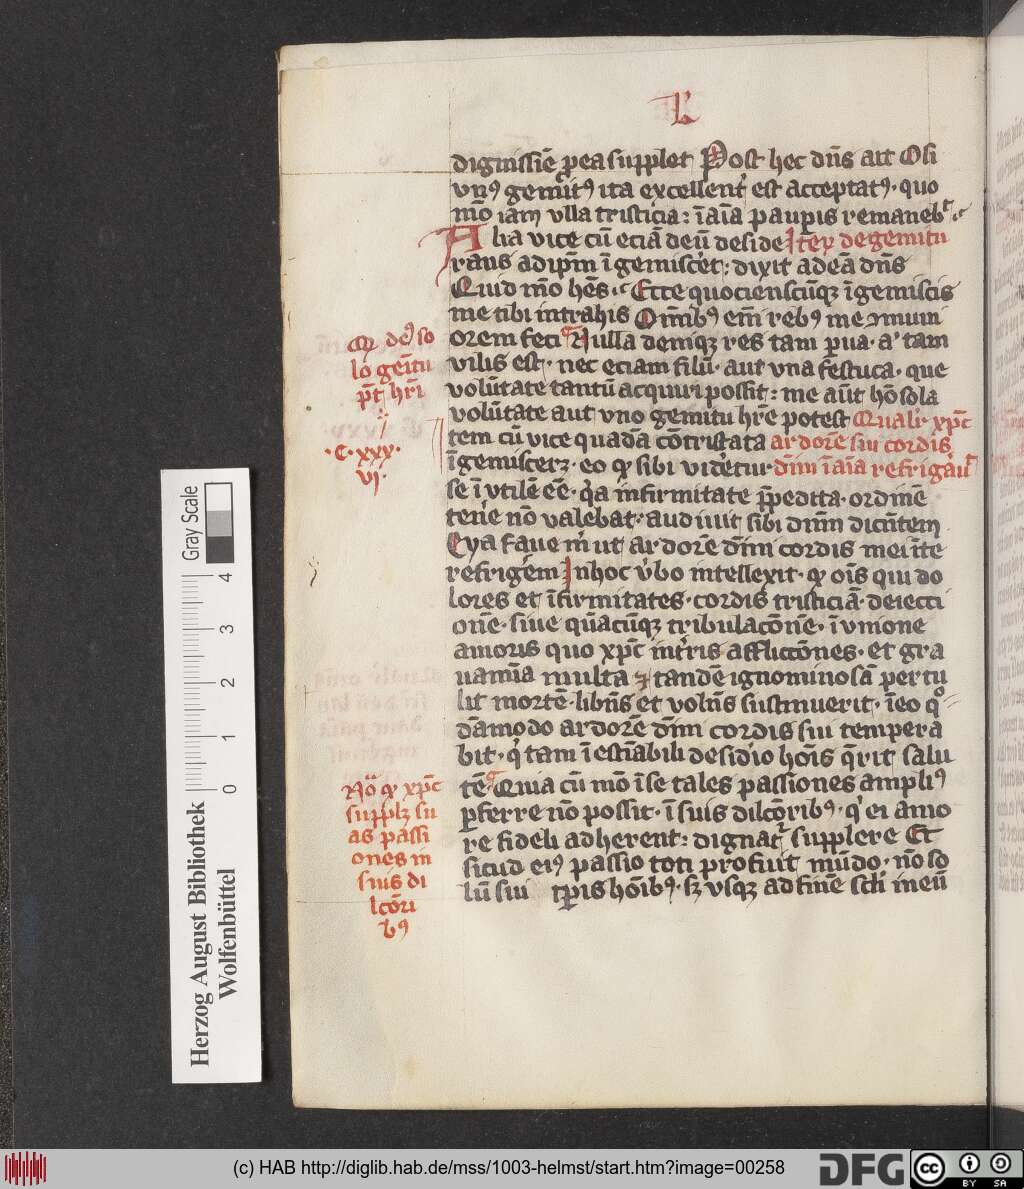 L
dignissiē ꝓ ea supplet Post hec dn̄s ait Osi
vnꝰ gemitꝰ ita excellent̄ est acceptatꝰ · quo
mō iam vlla tristicia : ī aīa paupis remaneb̄t
Alia vice cū eciā deū deside Itē de gemitu
rans adipīn īgemiscēt : dixit ad eā dn̄s
Quid m̄o hēs · Ecce quocienscūqꝫ īgemiscis
me tibi intrahis Om̄ibꝰ em̄ rebꝰ me ɔmuni
orem feci Nulla demqꝫ res tam ꝑua · a' tam
vilis est · nec eciam filū · aut vna festuca · que
volūtate tantū acquiri possit : me aūt hō sola
volūtate aut vno gemitu hr̄e potest Qualiꝰ xp̄c
tem cū vice quadā cōtristata ardorē sui cordis
īgemiscerꝫ · eo qꝫ sibi videtur · dīni ī aīa refrigāuit
se ī vtilē eē · q̄a infirmitate p̄pedita · ordinē
tenē nō valebat · audiuit sibi dn̄m dicn̄tem
Eya faue m̄ ut ardorē dīni cordis mei ī te
refrigēm In hoc v̄bo intellexit · qꝫ oīs qui do
lores et īfirmitates · cordis tristiciā · deiecti
onē · siue quācūqꝫ tribulacōnē · ī vnione
amoris quo xp̄c mr̄is afflictōnes · et gra
uamīa multa ⁊ tandē ignominosā pertu
lit mortē · libn̄s et voln̄s sustinuerit · ī eo qͦ
dāmodo ardorē dīni cordis sui tempera
bit · q̄ tam īestīabili desid̄io hoīs q̄rit salu
tē Quia cū mō ī se tales passiones ampliꝰ
ꝑferre nō possit · ī suis dilcōribꝰ · q̄ ei amo
re fideli adherent : dignat̄ supplere Et
sicud eiꝰ passio toti profuit mūdo · nō so
lū sui tp̄is hoībꝰ · sꝫ vsqꝫ ad finē sch' in eū
Qꝫ deꝰ so
lo gemitu
p̄t hr̄i
· C · xxx ·
vi ·
Nō qꝫ xp̄c
supplꝫ su
as passi
ones in
suis di
lcōri
bꝰ
Gray Scale
0 1 2 3 4
Herzog August Bibliothek
Wolfenbüttel
(c) HAB http://diglib.hab.de/mss/1003-helmst/start.htm?image=00258
DFG
cc
BY SA